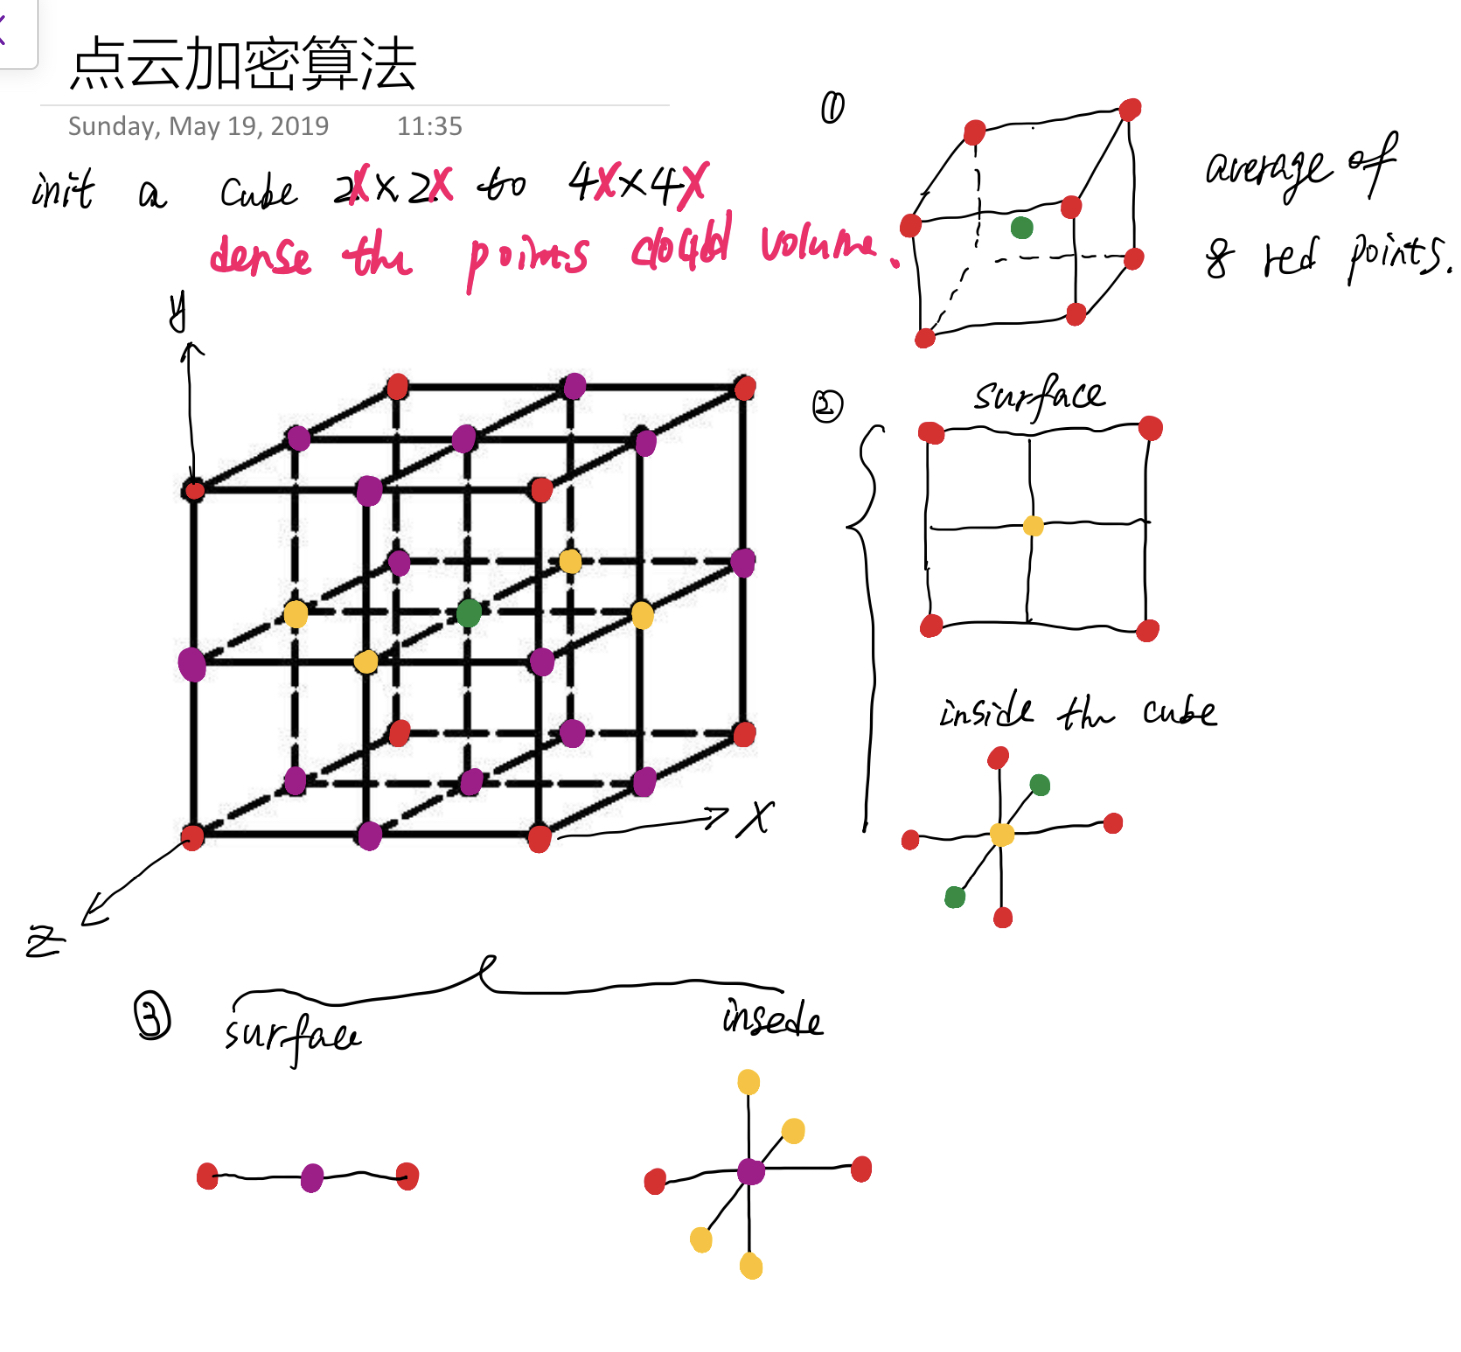 点云加密算法
Sunday, May 19, 2019 11:35
init a cube 2X×2X to 4X×4X
dense the points clould volume.
①
average of
8 red points.
y
x
z
②
surface
inside the cube
③
surface
insede